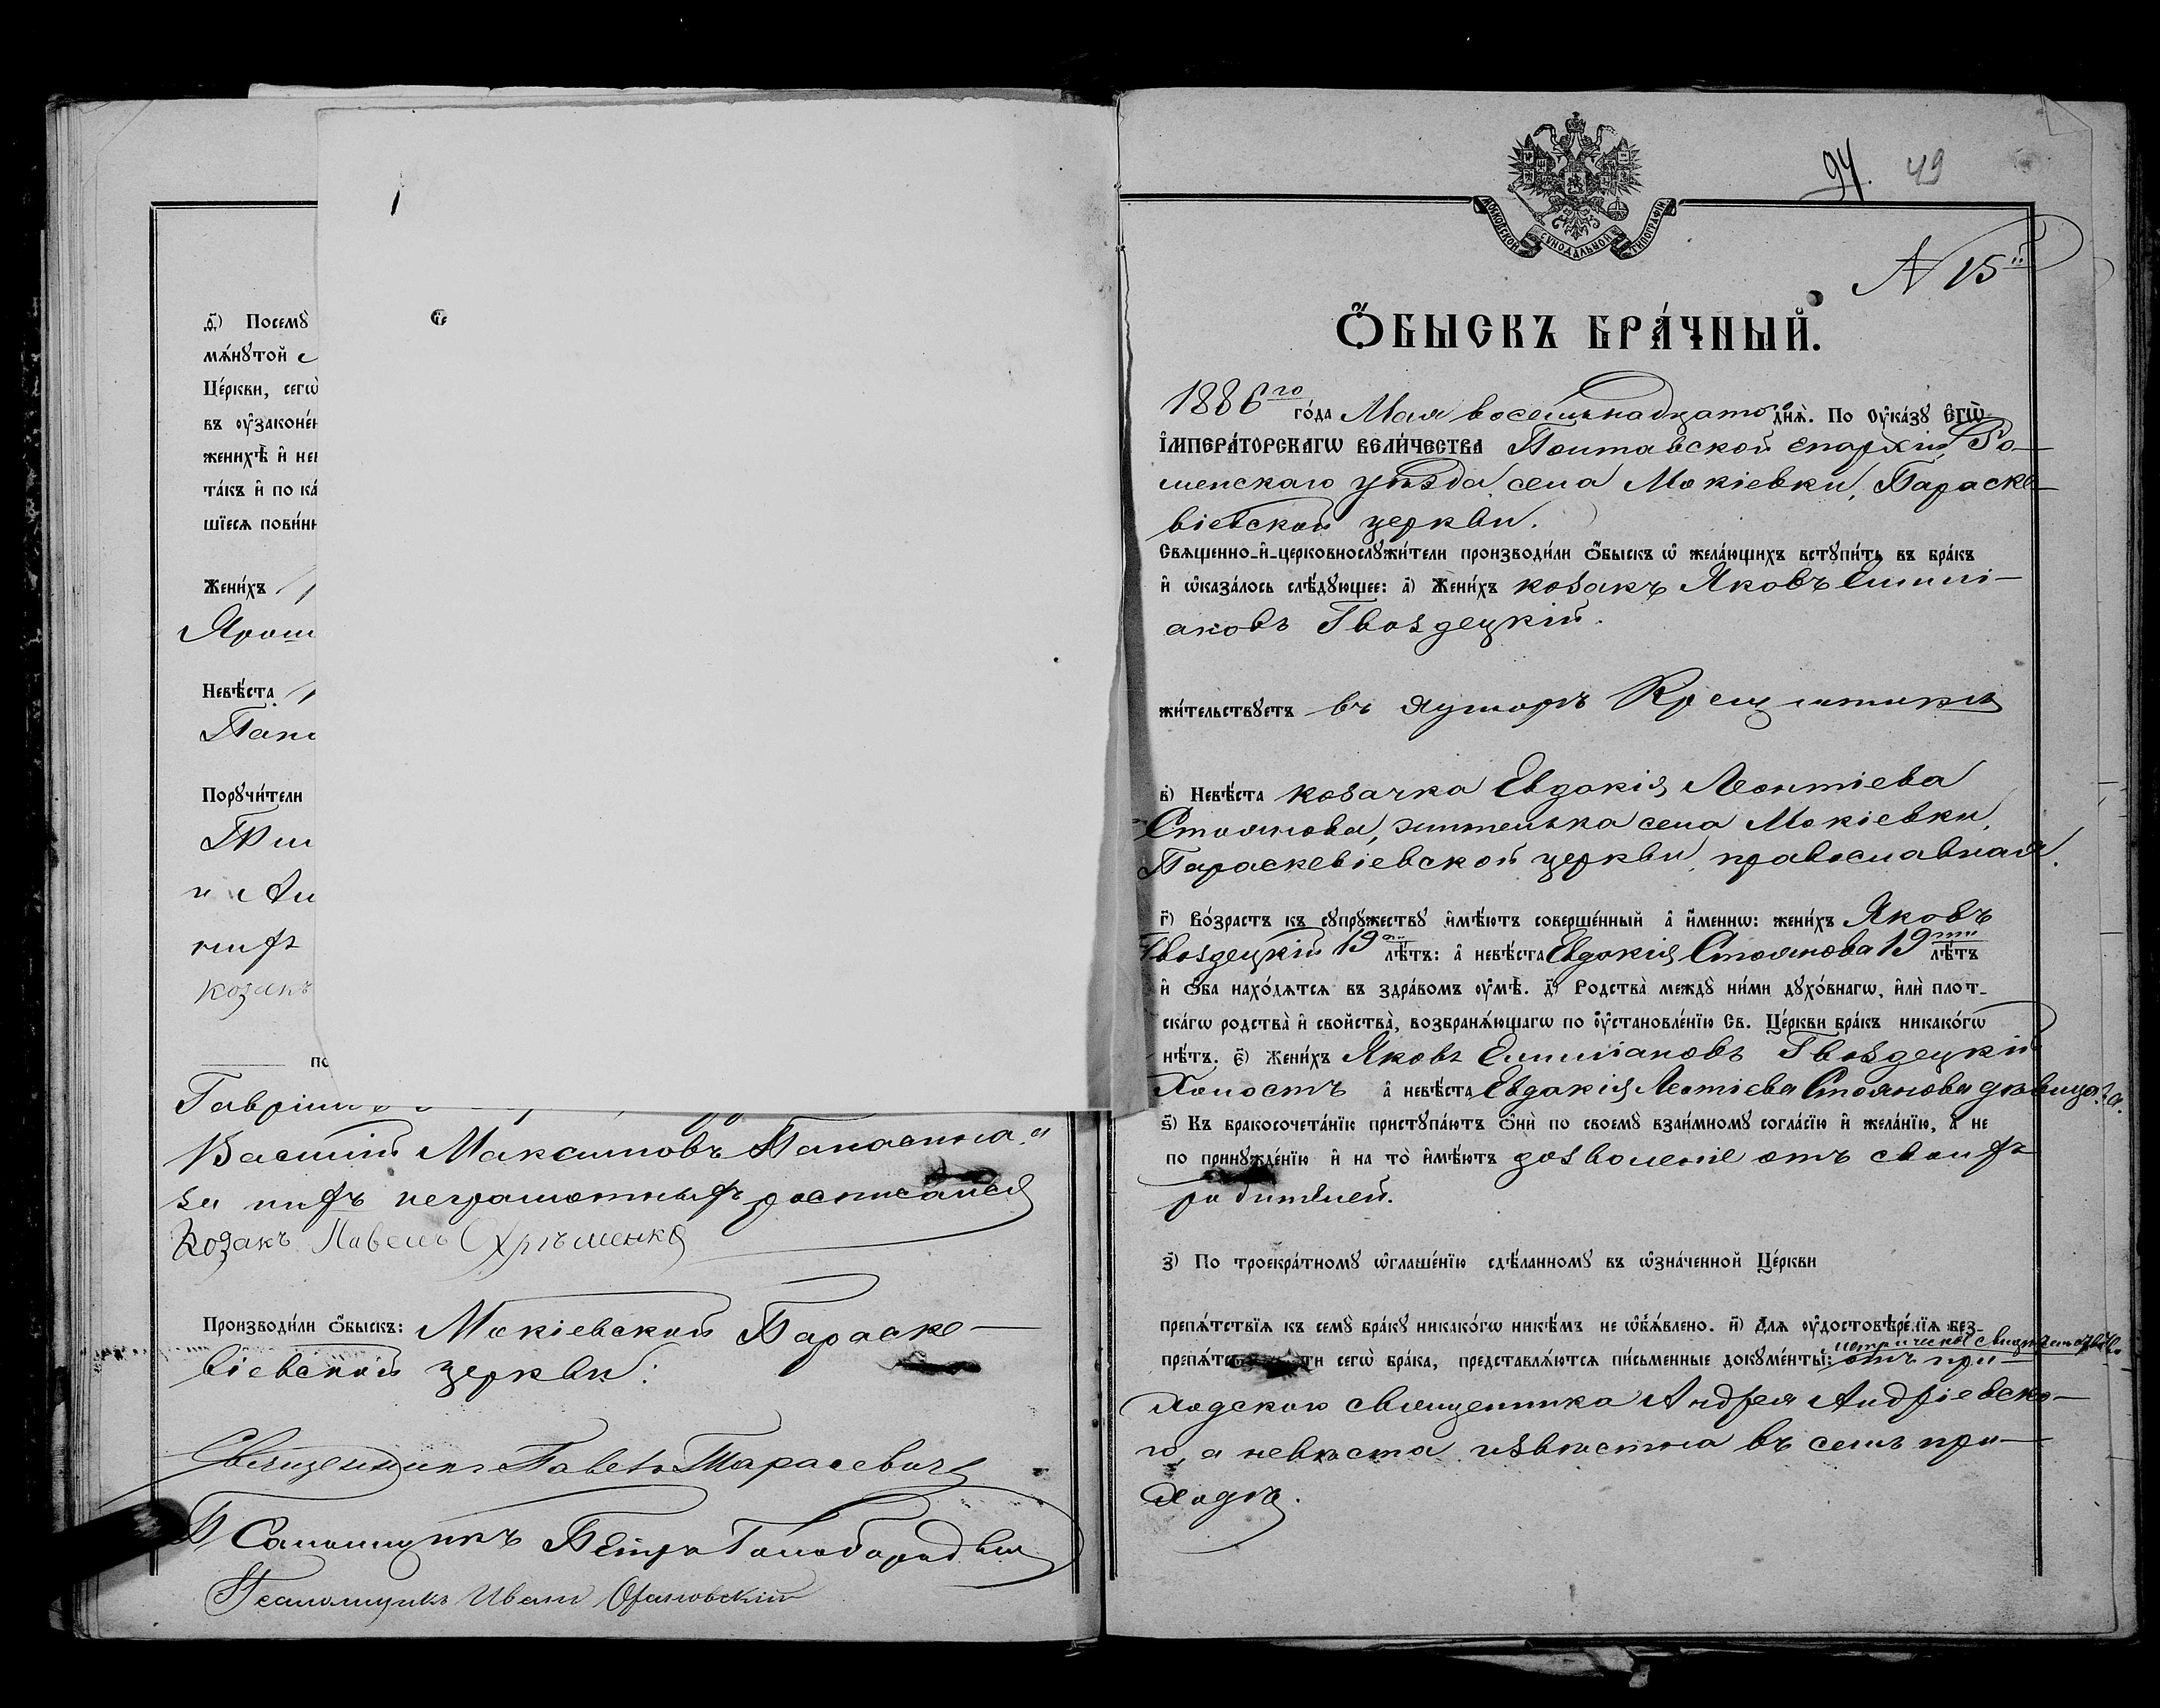 д҃) Посемꙋ
мѧ́нꙋтой
Це́ркви, сегѡ̀
въ ᲂу҆законе́н
женихѣ̀ и҆ не
та́къ и҆ по ка́
шїесѧ пови́н
Жени́хъ
Ярош
Невѣ́ста
Пана
Порꙋчи́тели
и Ан
нихъ
козакъ
по
Василій Максимовъ Панасюга, а
за нихъ неграмотныхъ росписался
Козакъ Павелъ Охрѣменко
Производи́ли ѻ҆́быскъ: Мокіевской Параске–
віевской церкви:
Священникъ Павелъ Тарасевичъ
Псаломщикъ Петръ Голобородько
Псаломщикъ Иванъ Орановскій
МОСКОВСКОЙ СѴНОДАЛЬНОЙ ТИПОГРАФІИ
94. 49
N 15й
Ѻ҆́БЫСКЪ БРА́ЧНЫЙ.
1886го го́да Мая восемьнадцатого днѧ̀. По ᲂу҆ка́зꙋ Є҆ГѠ̀
И҆МПЕРА́ТОРСКАГѠ ВЕЛИ́ЧЕСТВА Полтавской епархіи, Ро–
менскаго уѣзда, села Мокіевки, Параске–
віевской церкви.
Свѧщенно-и҆-церковнослꙋжи́тели производи́ли ѻ҆́быскъ ѡ҆ жела́ющихъ встꙋпи́ть въ бра́къ
и҆ ѡ҆каза́лось слѣ́дꙋющее: а҃) Жени́хъ козакъ Яковъ Емилі–
ановъ Гвоздецкій.
жи́тельствꙋетъ въ хуторѣ
в҃) Невѣ́ста козачка Евдокія Леонтіева
Стоянова, жителька села Мокіевки,
Параскевіевской церкви, православная.
г҃) Во́зрастъ къ сꙋпрꙋ́жествꙋ и҆мѣ́ютъ соверше́нный а҆ и҆́меннѡ: жени́хъ Яковъ
Гвоздецкій 19 лѣ́тъ: а҆ невѣ́ста Евдокія Стоянова 19ти лѣ́тъ
и҆ ѻ҆́ба нахо́дѧтсѧ въ здра́вомъ ᲂу҆мѣ̀. д҃) Родства̀ междꙋ̀ ни́ми дꙋхо́внагѡ, и҆лѝ плот-
ска́гѡ родства̀ и҆ свойства̀, возбранѧ́ющагѡ по ᲂу҆становле́нїю Св. Це́ркви бра́къ никако́гѡ
нѣ́тъ. є҃) Жени́хъ Яковъ Емиліановъ Гвоздецкій
Холостъ а҆ невѣ́ста Евдокія Леонтіева Стоянова дѣвица.
ѕ҃) Къ бракосочета́нїю пристꙋпа́ютъ ѻ҆нѝ по своемꙋ̀ взаи́мномꙋ согла́сїю и҆ жела́нїю, а҆ не
по принꙋжде́нїю и҆ на то̀ и҆мѣ́ютъ дозволеніе отъ своихъ
родителей.
з҃) По троекра́тномꙋ ѡ҆глаше́нїю сдѣ́ланномꙋ въ ѡ҆зна́ченной Це́ркви
препѧ́тствїѧ къ семꙋ̀ бра́кꙋ никако́гѡ никѣ́мъ не ѡ҆б̾ѧ́влено. и҃) Длѧ ᲂу҆достовѣре́нїѧ без-
препѧ́тс ти сегѡ̀ бра́ка, представлѧ́ютсѧ пи́сьменные докꙋме́нты: отъ при–
ходского священника Андрея Андріевско–
го, а невѣста извѣстна въ семъ при–
ходѣ.